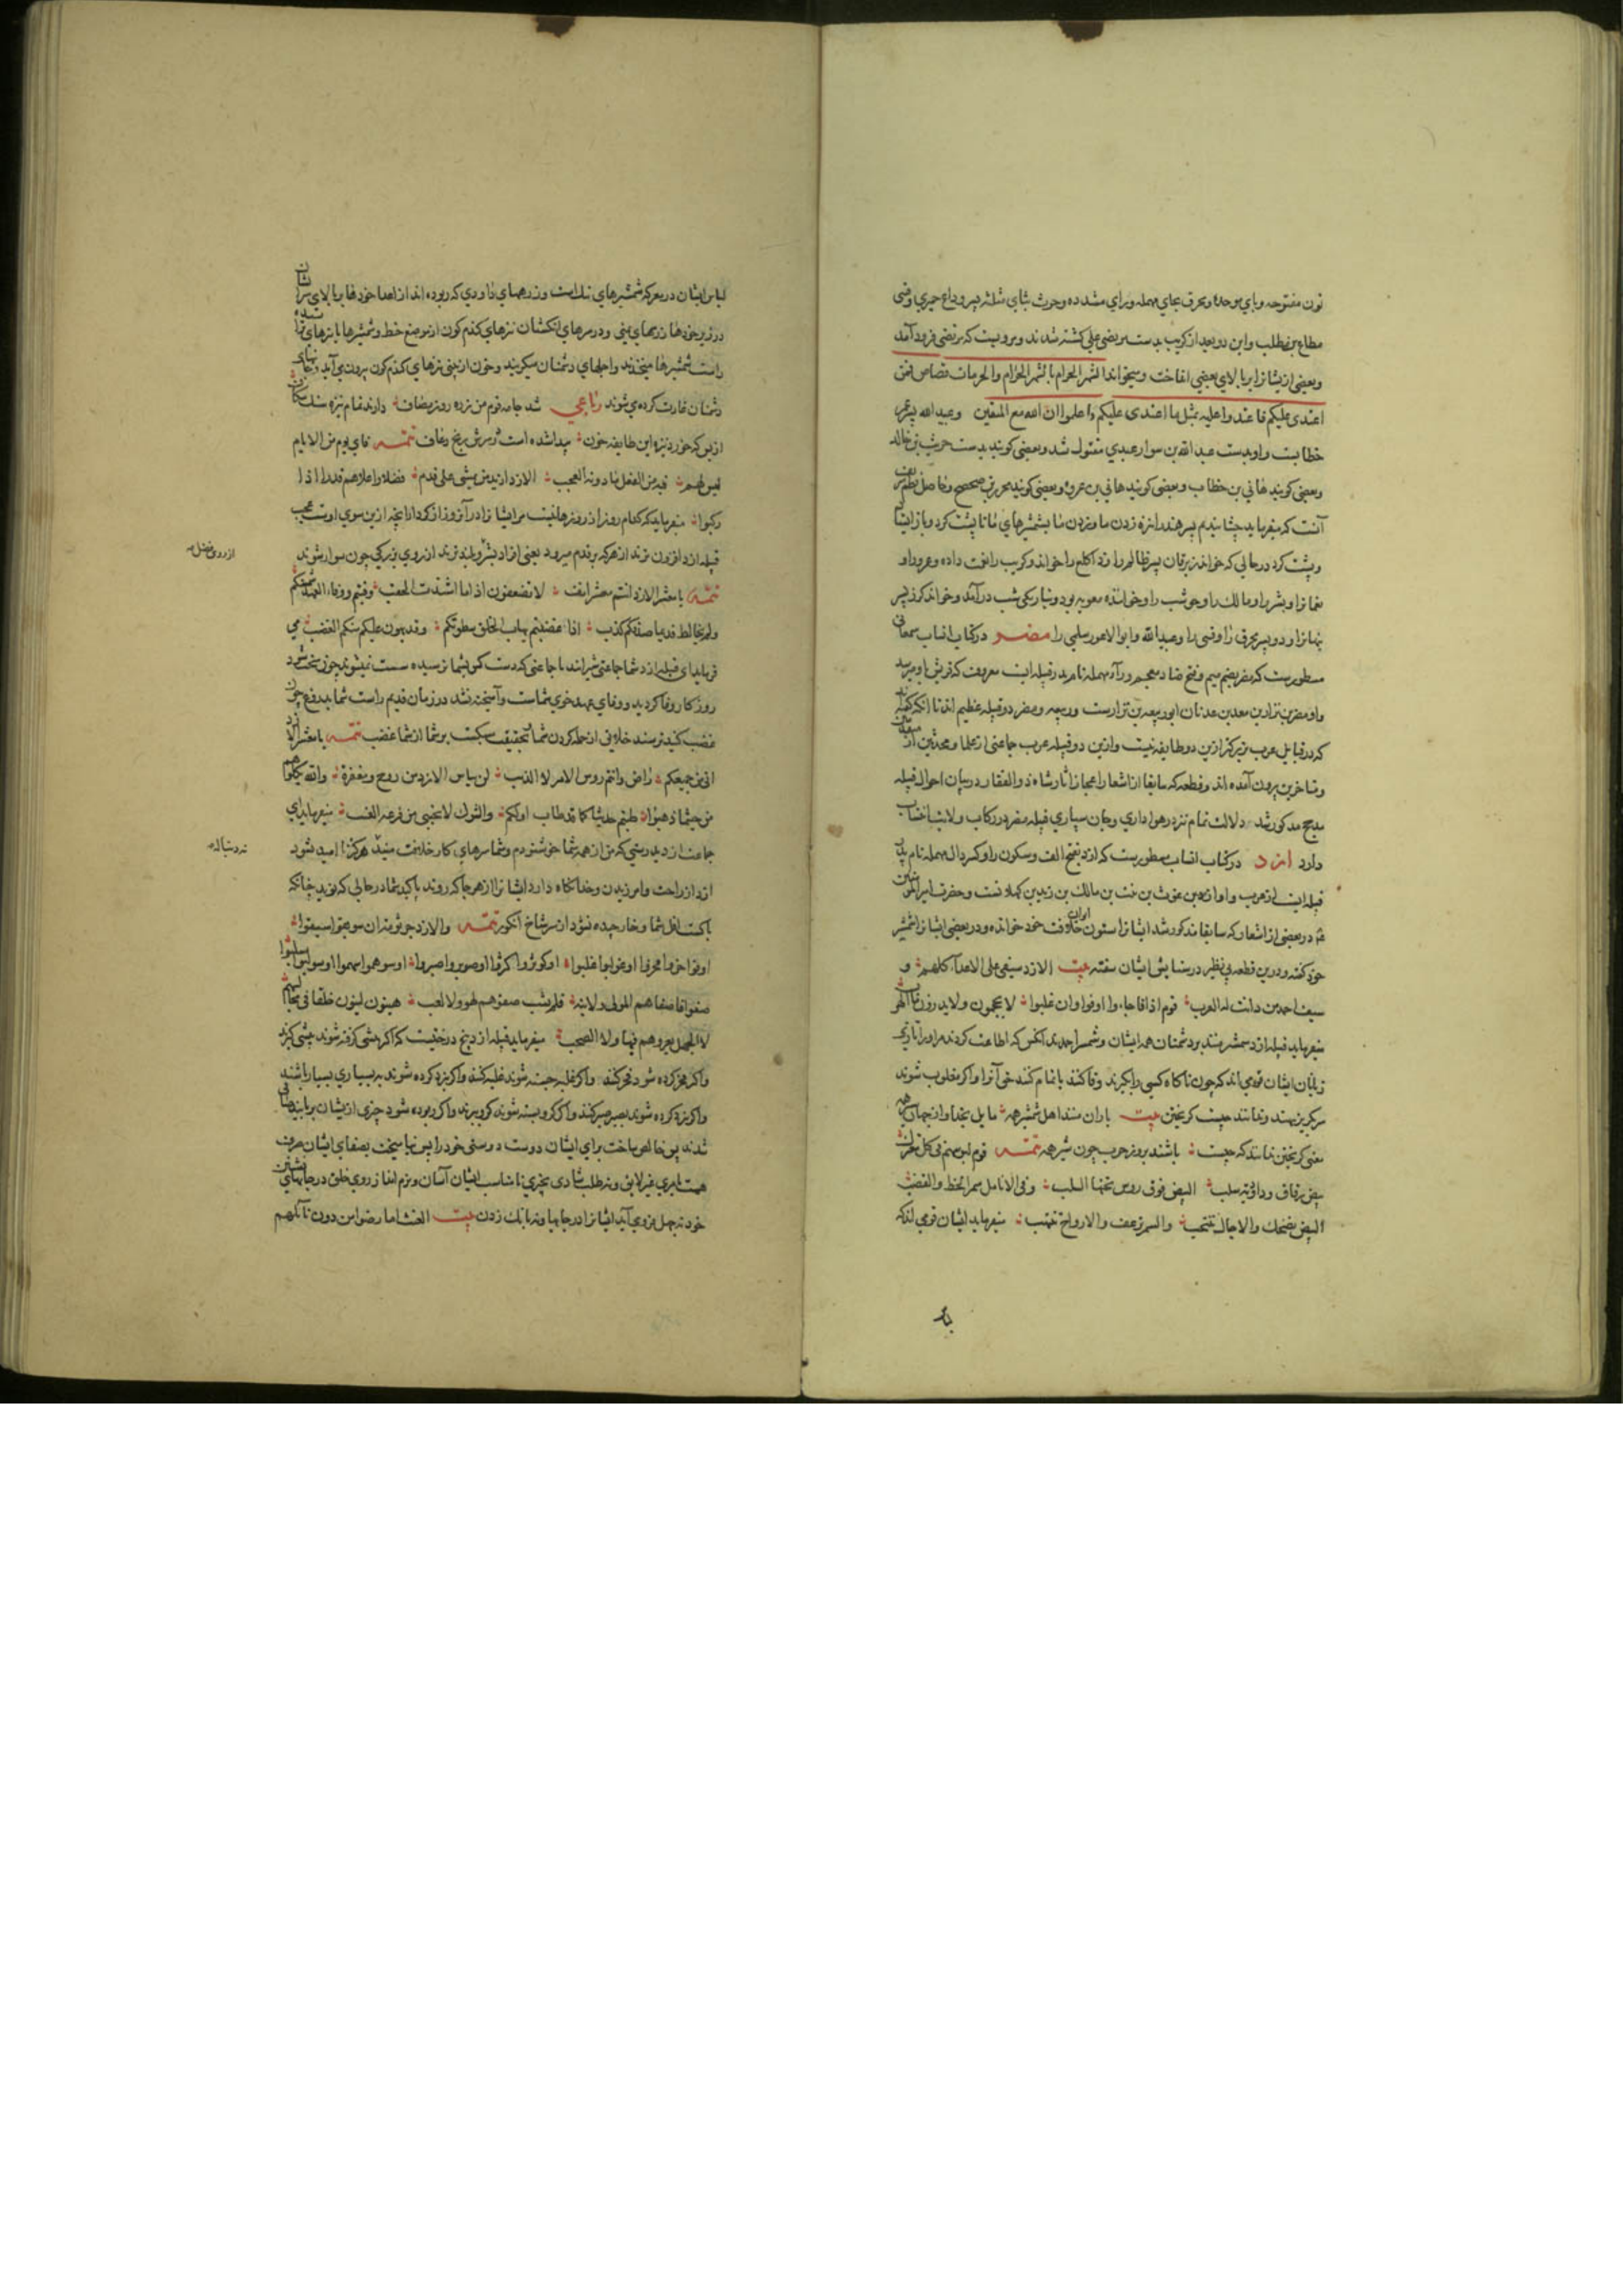 نون مفتوحه وبای موحده ومحرق بحای مهمله ورای مشدده وحرث بثای مثلثه پسر وداع حمیری وقنی
مطاع بن مطلب واین دو بعد از کریب بدست مرتضی علی کشته شدند ومرویست که مرتضی فرود آمد
وبعضی ازیشانرا بر بالای بعضی انداخت ومیخواند الشهر الحرام بالشهر الحرام والحرمات قصاص فمن
اعتدی علیکم فاعتدوا علیه بمثل ما اعتدی علیکم واعلموا ان الله مع المتقین وعبید الله پسر عمر
خطابست واو بدست عبد الله بن سوار عبدی مقتول شد وبعضی کویند بدست حریث بن خالد
وبعضی کویند هانی بن خطاب وبعضی کویند هانی بن عمرو وبعضی کویند محرز بن صحصح وحاصل نظم
آنست که میفرماید چشانیدم پسر هند را نیزه زدن ما وزدن ما بشمشیرهای ما تا پشت کرد وباز ایستاد
وپشت کرد در حالی که خواند زبرقان پسر ظالم را وذا الکلاع را خواند وکریب را افت داده وعمرو او
نعمانرا وبشر را ومالک را وحوشب را وخواننده معویه بود وتاریکی شب در آمد وخواند کرز پسر
نبهانرا ودو پسر محرق را وقنی را وعبید الله وابو الاعور سلمی را مضر در کتاب انساب سمعانی
مسطورست که مضر بضم میم وفتح ضاد معجمه وراء مهمله نام پدر قبیله ایست معروف که قریش باو میرسد
واو مضر بن نزار بن معد بن عدنان ابو ربیعه بن نزارست وربیعه ومضر دو قبیله عظیم اند تا آنکه گفته اند
که در قبایل عرب بزرکتر ازین دو طایفه نیست وازین دو قبیله عرب جماعتی از علما ومحدثین از متقدمین
ومتاخرین بیرون آمده اند وقطعه که سابقا از اشعار اعجاز آثار شاه ذو الفقار در بیان احوال قبیله
مدحج مذکور شد دلالت تمام بر هواداری وجان سپاری قبیله مضر در رکاب ولایت انتساب
دارد ازد در کتاب انساب مسطورست که ازد بفتح الف وسکون زا وکسر دال مهمله نام پدر
قبیله ایست از عرب واو ازد بن غوث بن نبت بن مالک بن زید بن کهلانست وحضرت امیر المؤمنین
در بعضی از اشعار که سابقا مذکور شد ایشانرا ستون ایوان خلافت خود خوانده ودر بعضی ایشانرا شمشیر
خود گفته ودرین قطعه بی نظیر در ستایش ایشان سفته بیت الازد سیفی علی الاعداء کلهم و
سیف احمد من دانت له العرب قوم اذا فاجاءوا اوفوا وان غلبوا لا یحجمون ولا یدرون ما الهرب
میفرماید قبیله ازد شمشیر منند بر دشمنان همه ایشان وشمشیر احمدند آنکس که اطاعت کردند مر او را تازی
زبانان ایشان قومی اند که چون ناکاه کسی را بگیرند وفا کنند یا تمام کنند حق آنرا واکر مغلوب شوند
سر بگریز ننهند وندانند چیست کریختن بیت یاران منند اهل شمشیر همه مایل بخدا واز جهان سیر همه
معنی کریختن ندانند که چیست باشند بروز حرب چون شیر همه تتمه قوم لبوسهم فی کل معترک
بیض رقاق وداؤدیه سلب البیض فوق رؤس تحتها الیلب وفی الانامل سمر الخط والقضب
البیض تضحک والآجال تنتحب والسمر ترعف والارواح تنتهب میفرماید ایشان قومی اند که
لباس ایشان در معرکه شمشیرهای تنک است وزرهای داودی که ربوده اند از اعدا خودها بر بالای سر ایشان
در زیر خودها زرهای یمنی ودر سرهای انکشتان نیزهای کندم کون از موضع خط وشمشیرها با نیزهای
راست شمشیرها میخندند واجلهای دشمنان میکریند وخون از بینی نیزهای کندم کون بیرون می آید وجانهای
دشمنان غارت کرده می شوند رباعی شد جامه قوم من زره روز مصاف دارند تمام نیزه سنک شکاف
از بس که خورد نیزه این طایفه خون پیدا شده است بر سرش رنج رعاف تتمه فای یوم من الایام
لیس لهم فیه من الفعل ما دونه العجب الازد ازید من یمشی علی قدم فضلا واعلاهم قدرا اذا
رکبوا میفرماید که کدام روز از روزها نیست مر ایشانرا در آنروز از کردار آنچه ازین سوی اوست عجب
قبیله ازد افزون ترند از هر که بر قدم میرود یعنی افراد بشر وبلند ترند از روی بزرکی چون سوار شوند
از روی فضل
تتمه یا معشر الازد انتم معشر انف لا تضعفون اذا ما اشتدت الحقب وفیتم ووفاء العهد شیمتکم
ولم یخالط قدیما صدقکم کذب اذا غضبتم یهاب الخلق سطوتکم وقد یهون علیکم منکم الغضب می
فرماید ای قبیله ازد شما جماعتی شیرانند یا جماعتی که دست کس بشما نرسیده سست نمیشوید چون سخت شود
روزکار وفا کردید ووفای عهد خوی شماست وآمیخته نشد در زمان قدیم راست شما بدروغ چون
غضب کنید ترسند خلایق از حمله کردن شما وبتحقیق سبکست بر شما از شما غضب تتمه یا معشر الازد
انی من جمیعکم راض وانتم رؤس الامر لا الذنب لن ییاس الازد من روح ومغفرة والله یکلؤهم
من حیثما ذهبوا طبتم حدیثا کما قد طاب اولکم والشوک لا یجتنی من فرعه العنب میفرماید ای
جماعت ازد بدرستی که من از همه شما خوشنودم وشما سرهای کار خلافت منید هرکز نا امید نشود
نه دنباله
ازد از راحت وآمرزیدن وخدا نکاه دارد ایشانرا از هر جا که روند پاکید شما در حالی که نوید چنانکه
پاکست اول شما وخار چیده نشود از سر شاخ انکور تتمه والازد جرثومة ان سوبقوا سبقوا
او فوخروا فخروا او غولبوا غلبوا او کوثروا کثروا او صوبروا صبروا او سوهموا سهموا او سولبوا سلبوا
صفوا فاصفاهم المولی ولایته فلم یشب صفوهم لهو ولا لعب هینون لینون خلقا فی مجالسهم
لا الجهل یعروهم فیها ولا الصخب میفرماید قبیله ازد بیخ درختیست که اکر پیشی کرفته شوند پیشی کیرند
واکر فخر کرده شوند فخر کنند واکر غلبه جسته شوند غلبه کنند واکر نبرد کرده شوند به بسیاری بسیار باشند
واکر نبرد کرده شوند بصبر صبر کنند واکر کرو بسته شوند کرو برند واکر ربوده شود چیزی ازیشان بربایند صافی
شدند پس خالص ساخت برای ایشان دوست دوستی خود را پس نیامیخت بصفای ایشان صرف
همت بامری غیر لایق ونه طلب شادی بچیزی نامناسب ایشان آسان ونرم اند از روی خلق در جایهای نشستن
خود نه جهل فرو می آید ایشانرا در جایها ونه بانک زدن بیت الغیث اما رضوا من دون نائلهم